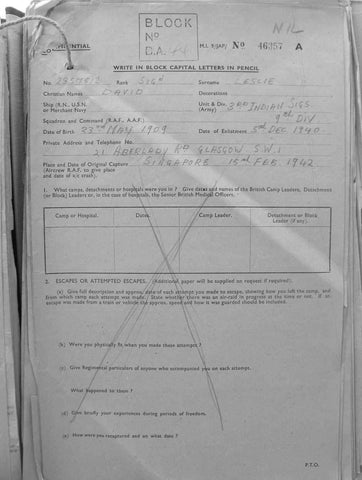 BLOCK
Nº
D.A.
NIL
M.I. 9/JAP/ Nº 46357 A
WRITE IN BLOCK CAPITAL LETTERS IN PENCIL
No. Rank SIGN Surname LESLIE
Christian Names DAVID Decorations
Ship (R.N., U.S.N. or Merchant Navy) Unit & Div. (Army) 3RD INDIAN SIGS
Squadron and Command (R.A.F., A.A.F.) 9TH DIV
Date of Birth 23RD MAY 1909 Date of Enlistment 5TH DEC 1940.
Private Address and Telephone No.
21 ABERLADY RD GLASGOW S.W.1
Place and Date of Original Capture SINGAPORE 15TH FEB. 1942.
(Aircrew R.A.F. to give place and date of a/c crash).
1. What camps, detachments or hospitals were you in? Give dates and names of the British Camp Leaders, Detachment (or Block) Leaders or, in the case of hospitals, the Senior British Medical Officers.
Camp or Hospital. Dates. Camp Leader. Detachment or Block Leader (if any).
2. ESCAPES OR ATTEMPTED ESCAPES. (Additional paper will be supplied on request if required).
(a) Give full description and approx. date of each attempt you made to escape, showing how you left the camp, and
from which camp each attempt was made. State whether there was an air-raid in progress at the time or not. If an
escape was made from a train or vehicle the approx. speed and how it was guarded should be included.
(b) Were you physically fit when you made these attempts?
(c) Give Regimental particulars of anyone who accompanied you on each attempt.
What happened to them?
(d) Give briefly your experiences during periods of freedom.
(e) How were you recaptured and on what date?
P.T.O.